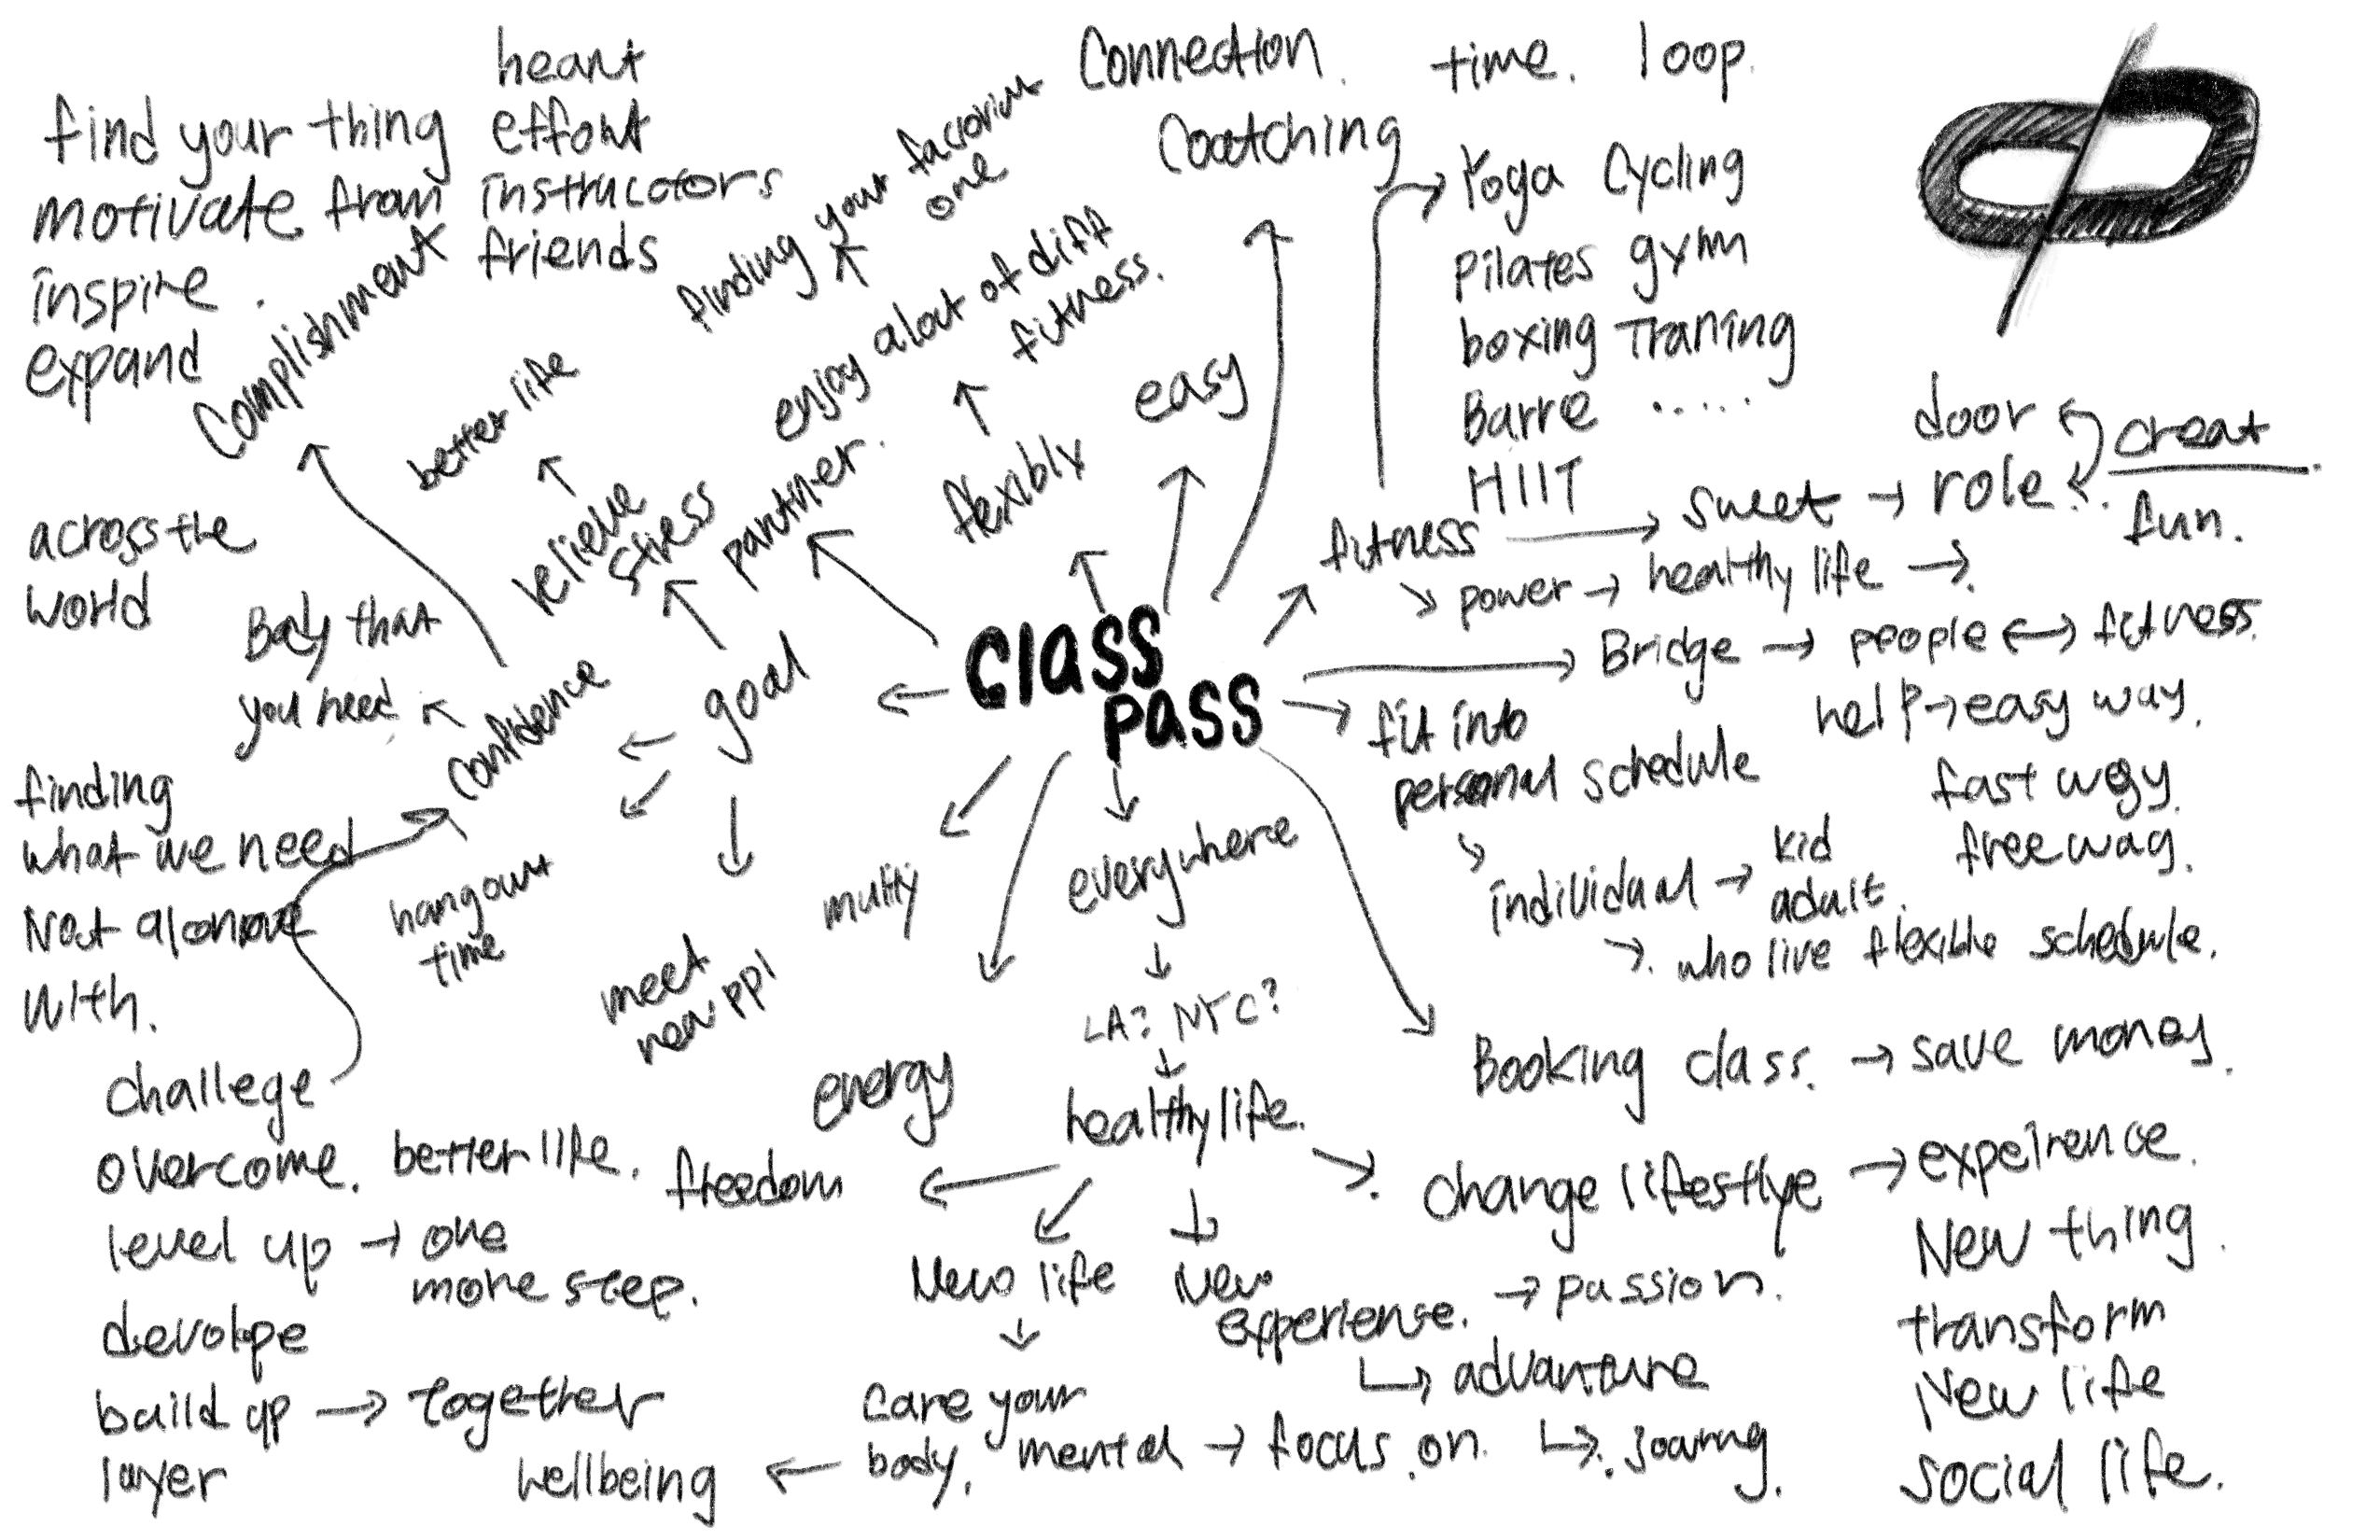 heart
find your thing effort
motivate from instructors
friends
inspire.
expand
Complishment
better life
relieve
stress
partner.
finding your
one
enjoy alot of diff
fitness.
flexibly
easy
Connection.
time. loop.
Yoga Cycling
Pilates gym
boxing
Barre .....
HIIT
door
creat
fun.
fitness
sweet
role
power
healthy life
Bridge
people
fitness.
help
easy way.
fast way.
free way.
fit into
personal schedule
individual
kid
adult.
who live flexible schedule.
Booking class.
save money.
across the
world
Body that
you need
Confidence
goal
Class
pass
finding
what we need
Not
with.
hangout
time
meet
new ppl
everywhere
LA? NYC?
energy
healthy life.
challege
overcome. better life.
freedom
change
experience.
New thing.
transform
New life
social life.
level up
one
more step.
build up
together
layer
wellbeing
New life
New
experience.
passion.
advanture
care your
body. mental
focus on.